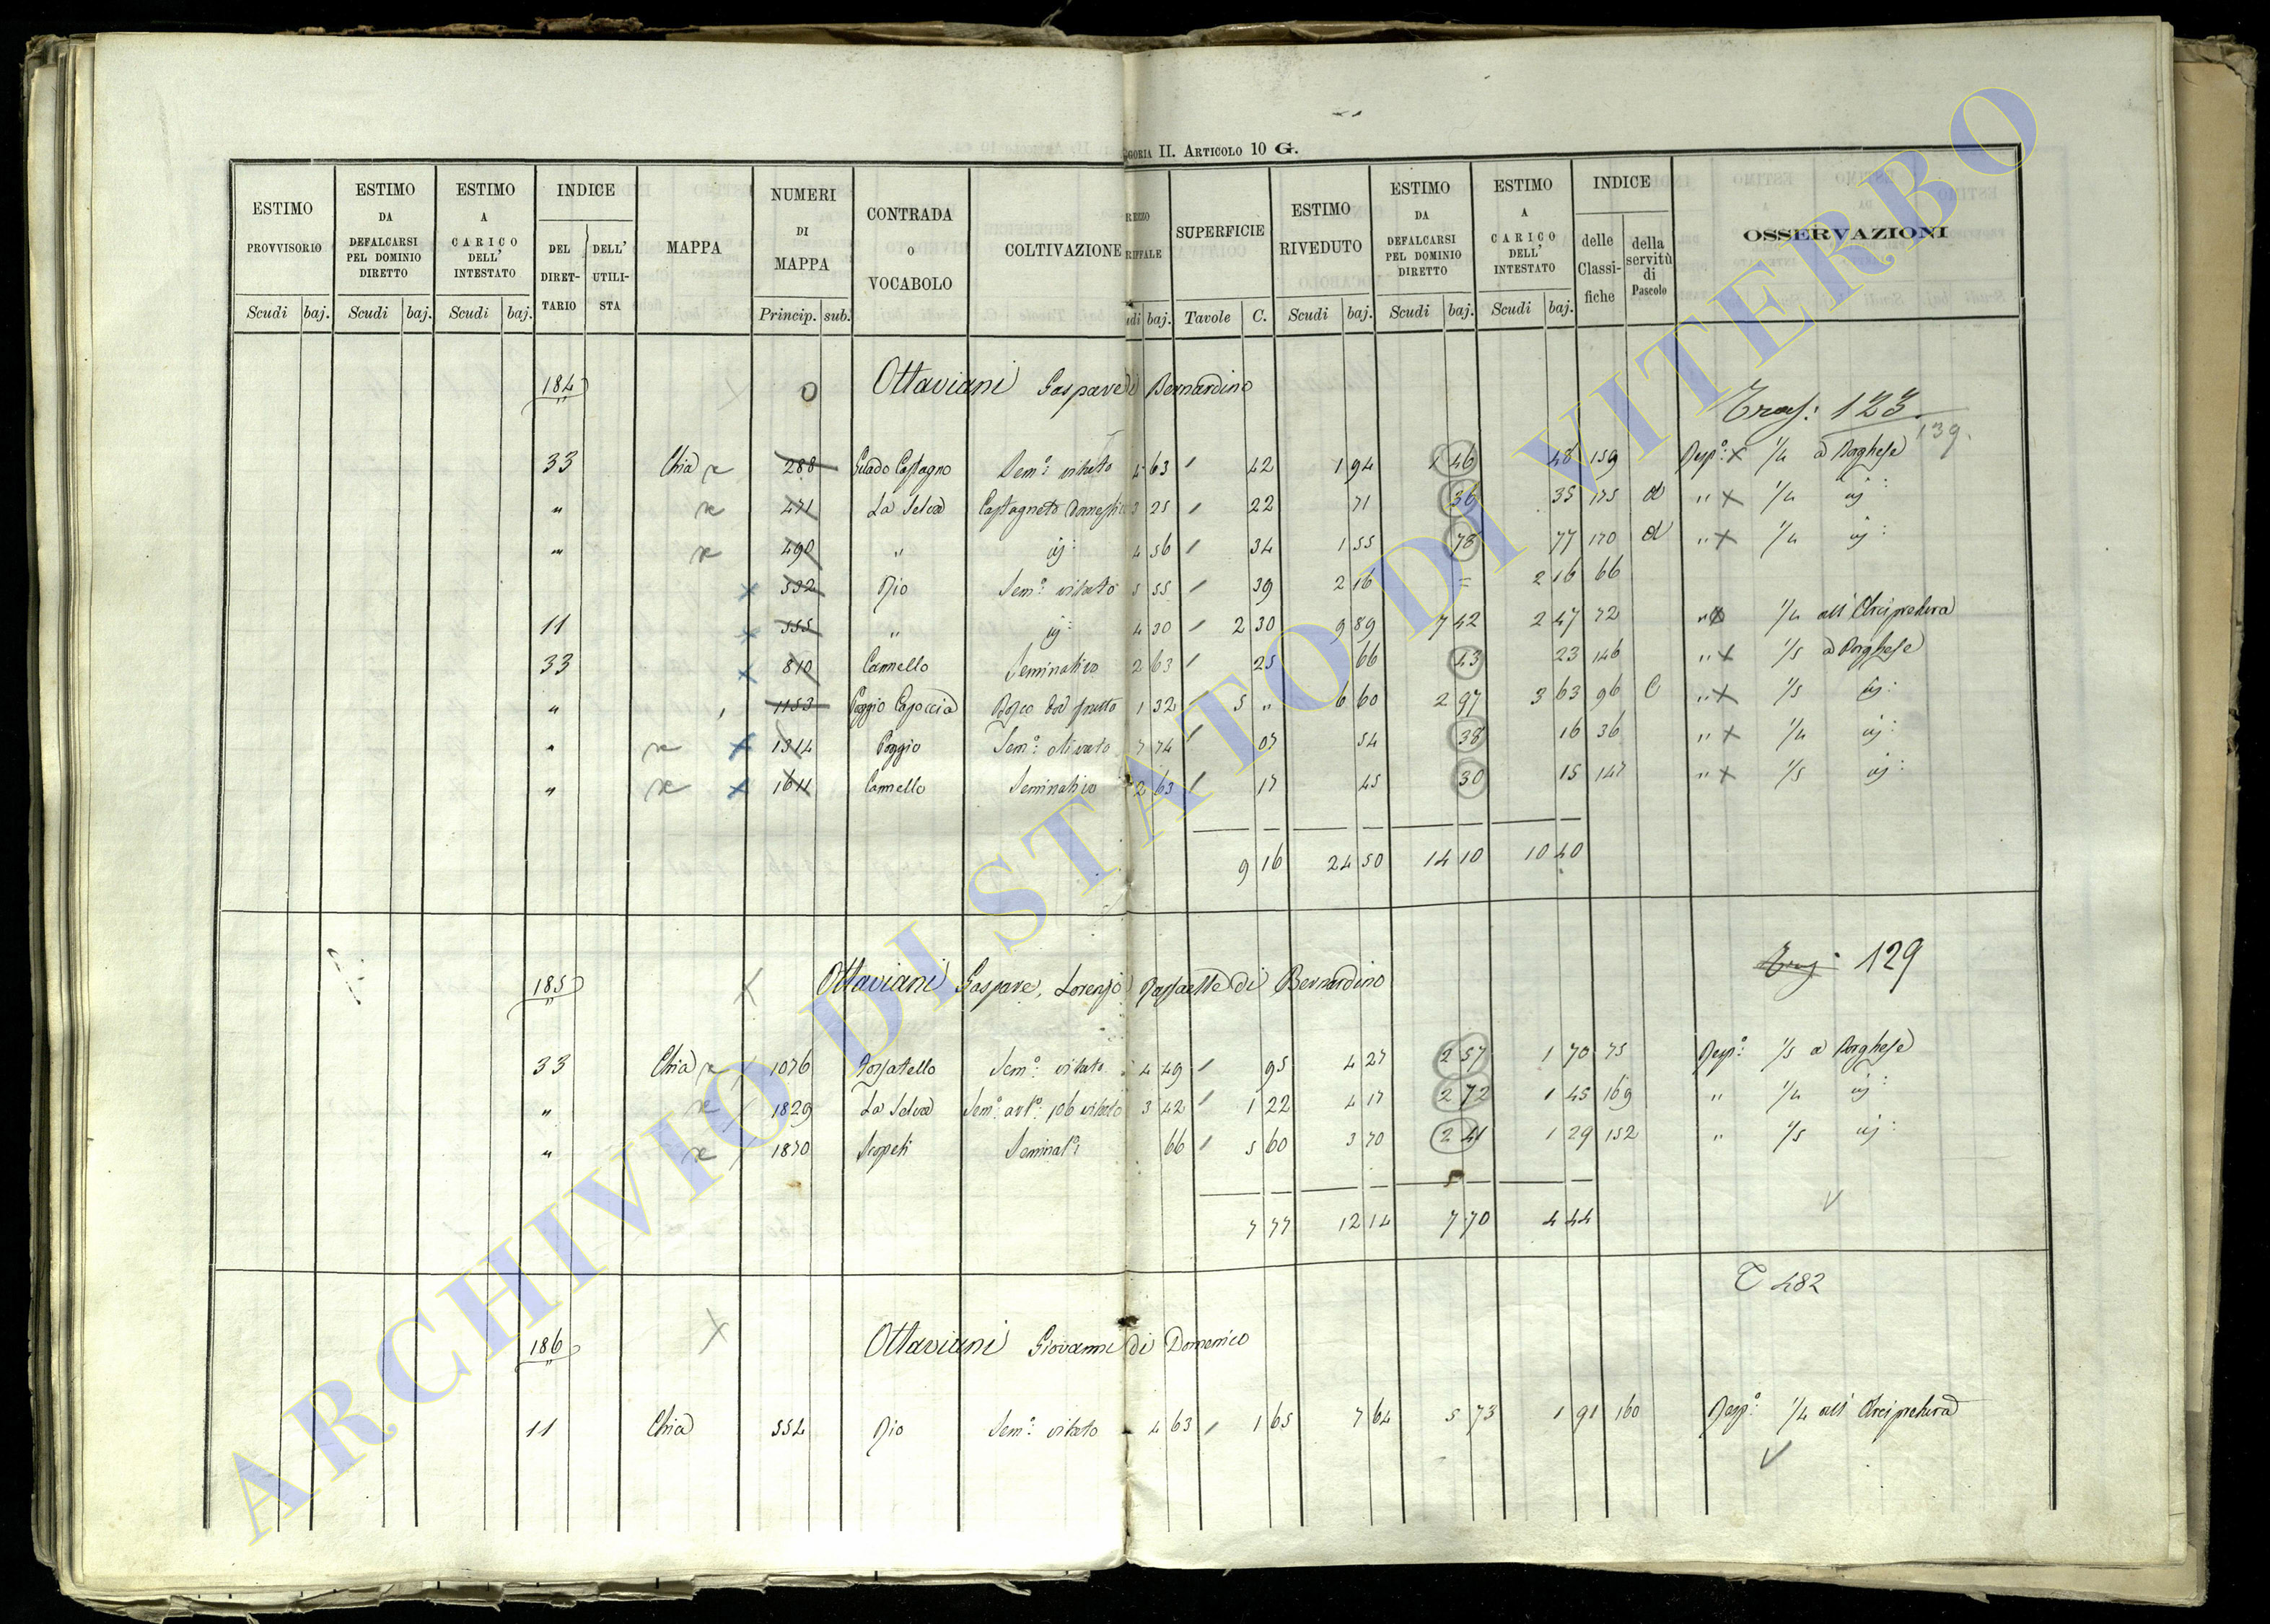 GORIA II. ARTICOLO 10 G.
ESTIMO PROVVISORIO ESTIMO DA DEFALCARSI PEL DOMINIO DIRETTO ESTIMO A CARICO DELL' INTESTATO INDICE DEL DIRETTARIO DELL' UTILISTA MAPPA NUMERI DI MAPPA CONTRADA O VOCABOLO COLTIVAZIONE SUPERFICIE ESTIMO RIVEDUTO ESTIMO DA DEFALCARSI PEL DOMINIO DIRETTO ESTIMO A CARICO DELL' INTESTATO INDICE delle Classifiche della servitù di Pascolo OSSERVAZIONI
Scudi baj. Scudi baj. Scudi baj. Princip. sub. baj. Tavole C. Scudi baj. Scudi baj. Scudi baj.
184 O Ottaviani Gaspare di Bernardino Tras: 123
139.
33 Chia 288 Guado Castagno Sem:° vitato 4 63 / 42 1 94 1 46 48 159 Resp:° x 1/4 a Borghese
" 471 La Selva Castagneto Domestico 3 25 / 22 71 36 35 175 d " x 1/4 ij:
" 490 " ij: 4 56 / 34 1 55 78 77 170 d " x 1/4 ij:
x 532 Rio Sem:° vitato 5 55 / 39 2 16 = 2 16 66
11 x 555 " ij: 4 30 / 2 30 9 89 7 42 2 47 72 " x 1/4 all' Arcipretura
33 x 810 Cannello Seminativo 2 63 / 25 66 43 23 146 " x 1/5 a Borghese
" 1153 Poggio Capoccia Bosco da frutto 1 32 / 5 " 6 60 2 97 3 63 96 C " x 1/5 ij:
" x 1314 Poggio Sem:° olivato 7 74 / 07 54 38 16 36 " x 1/4 ij:
" x 1611 Cannello Seminativo 2 63 / 17 45 30 15 147 " x 1/5 ij:
9 16 24 50 14 10 10 40
185 X Ottaviani Gaspare, Lorenzo Raffaelle di Bernardino Tras: 129
33 Chia 1076 Sem:° vitato 4 49 / 95 4 27 2 57 1 70 75 Resp:° 1/5 a Borghese
" 1829 La Selva Sem:° art:° vitato 3 42 / 1 22 4 17 2 72 1 45 169 " 1/4 ij:
" 1870 Scopeti Seminat:° 66 / 5 60 3 70 2 41 1 29 152 " 1/5 ij:
7 77 12 14 7 70 4 44
T 482
186 X Ottaviani Giovanni di Domenico
11 Chia 554 Rio Sem:° vitato 4 63 / 1 65 7 64 5 73 1 91 160 Resp:° 1/4 all' Arcipretura
ARCHIVIO DI STATO DI VITERBO